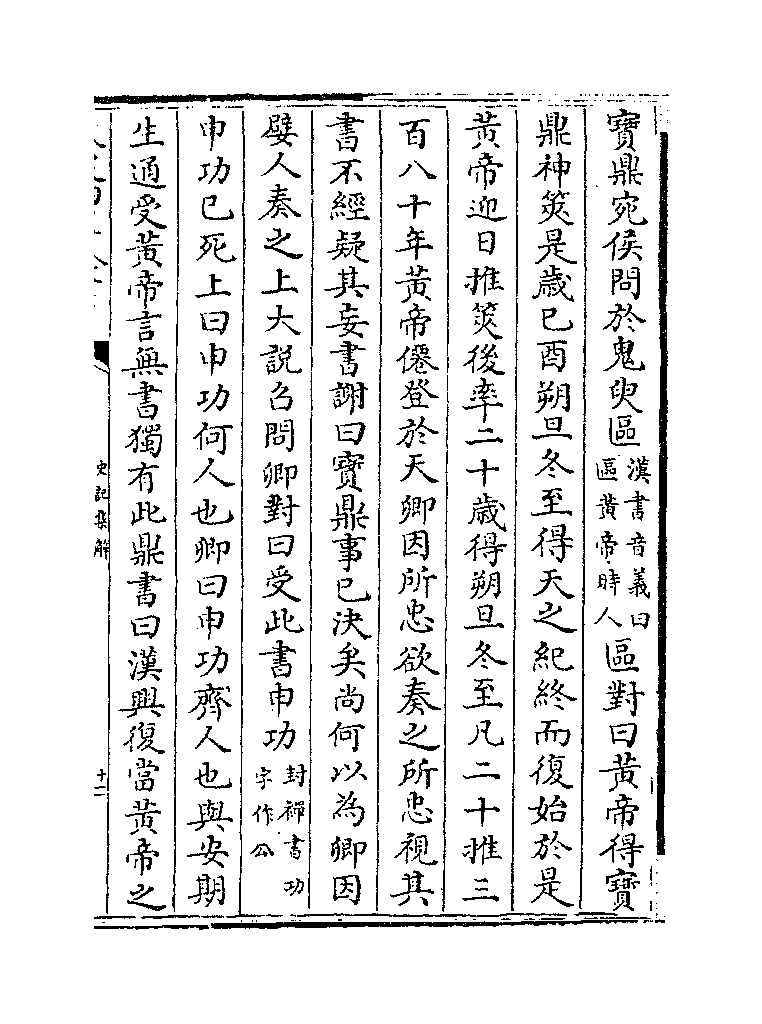 寶鼎宛侯問於鬼臾區漢書音義曰區黃帝時人區對曰黃帝得寶
鼎神筴是歲已酉朔旦冬至得天之紀終而復始於是
黃帝迎日推筴後率二十歲得朔旦冬至凡二十推三
百八十年黃帝僊登於天卿因所忠欲奏之所忠視其
書不經疑其妄書謝曰寶鼎事已決矣尚何以為卿因
嬖人奏之上大說召問卿對曰受此書申功封禪書功字作公
申功已死上曰申功何人也卿曰申功齊人也與安期
生通受黃帝言無書獨有此鼎書曰漢興復當黃帝之
史記集解
十二